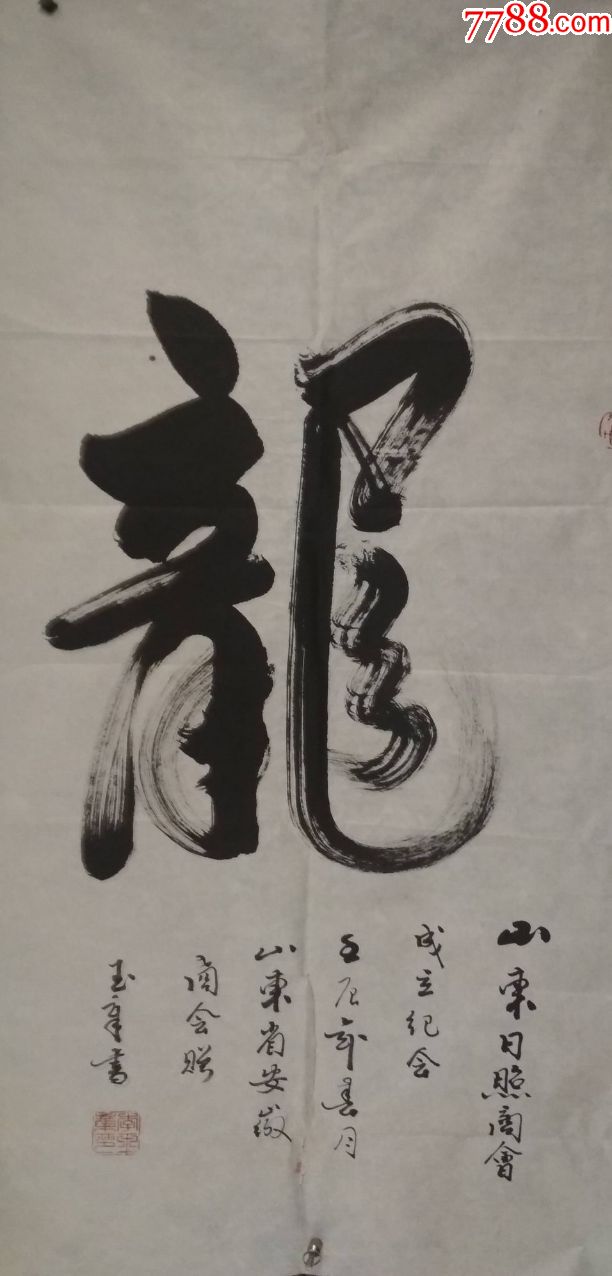 7788.com
龍
山東日照商會
成立纪念
壬辰年春月
山東省安徽
商会赠
玉章書